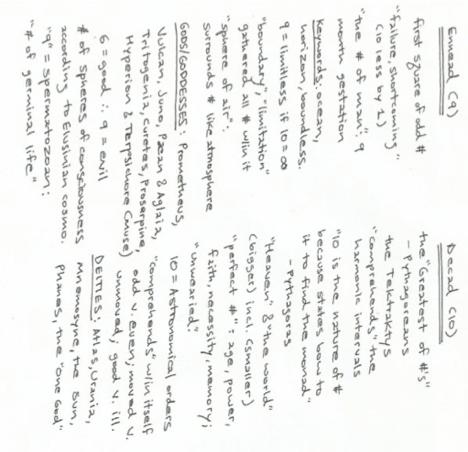 Ennead (9)
first square of odd #
"failure, shortcoming"
(10 less by 1)
"the # of man": 9
month gestation
Keywords: ocean,
horizon, boundless.
9 = limitless if 10 = ∞
"boundary", "limitation"
gathered all # w/in it
"sphere of air":
surrounds # like atmosphere
GODS/GODDESSES: Prometheus,
Vulcan, Juno, Pæan & Aglaia,
Tritogenia, Curetes, Proserpine,
Hyperion & Terpsichore (muse)
6 = good ∴ 9 = evil
# of spheres of consciousness
according to Elusinian cosmo.
"9" = spermatozoan:
"# of germinal life."
Decad (10)
the "Greatest of #'s"
- Pythagoreans
the Tektraktys
"comprehends" the
harmonic intervals
"10 is the nature of #
because states bow to
it to find the monad.
- Pythagoras
"Heaven" & "the world"
(bigger) incl. (smaller)
"perfect #": age, power,
faith, necessity, memory;
"unwearied."
10 = Astronomical orders
"comprehends" w/in itself
odd v. even; moved v.
unmoved; good v. ill.
DEITIES: Atlas, Urania,
Mnemosyne, the Sun,
Phanes, the "One God"